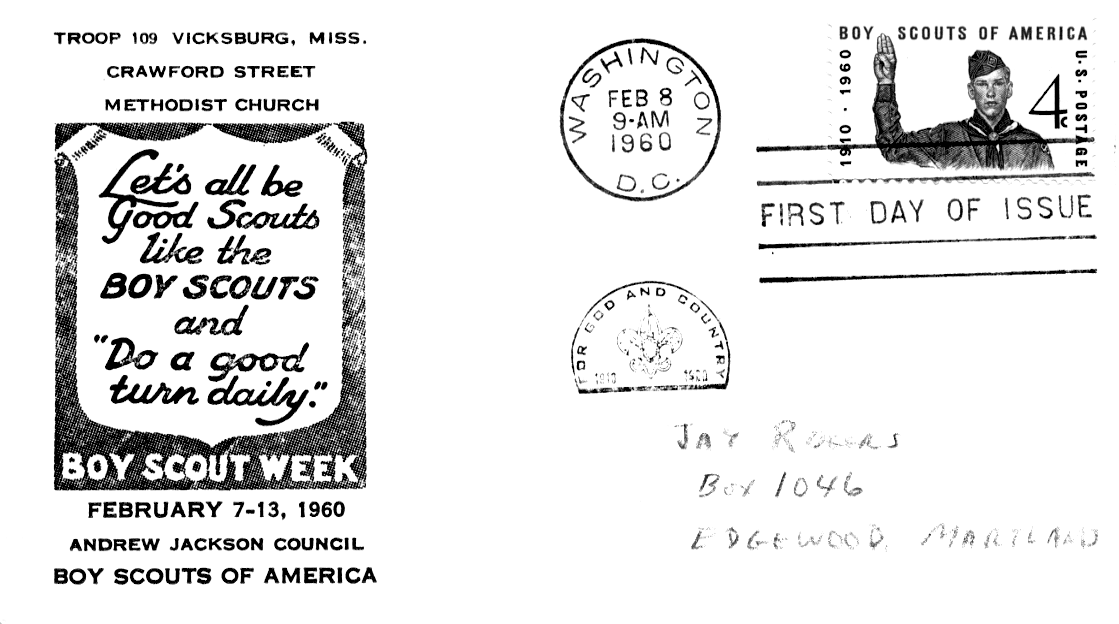 TROOP 109 VICKSBURG, MISS.
CRAWFORD STREET
METHODIST CHURCH
Let's all be
Good Scouts
like the
BOY SCOUTS
and
"Do a good
turn daily."
BOY SCOUT WEEK
FEBRUARY 7-13, 1960
ANDREW JACKSON COUNCIL
BOY SCOUTS OF AMERICA
WASHINGTON
FEB 8
9-AM
1960
D.C.
BOY SCOUTS OF AMERICA
1910 · 1960
4c
U·S·POSTAGE
FIRST DAY OF ISSUE
FOR GOD AND COUNTRY
1910 1960
JAY
Box 1046
EDGEWOOD, MARYLAND